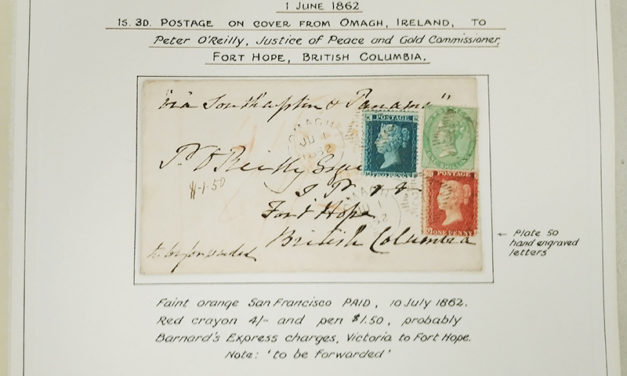 1 JUNE 1862
1S. 3D. POSTAGE ON COVER FROM OMAGH, IRELAND, TO
PETER O'REILLY, JUSTICE OF PEACE AND GOLD COMMISSIONER,
FORT HOPE, BRITISH COLUMBIA.
"via Southampton & Panama"
OMAGH
JU 1
POSTAGE
TWO PENCE
P. O'Reilly Esqre
$1.50
J P
POSTAGE
ONE PENNY
Fort Hope
British Columbia
to be forwarded
← Plate 50
hand engraved
letters
Faint orange San Francisco PAID, 10 July 1862.
Red crayon 4/- and pen $1.50, probably
Barnard's Express charges, Victoria to Fort Hope.
Note: 'to be forwarded'